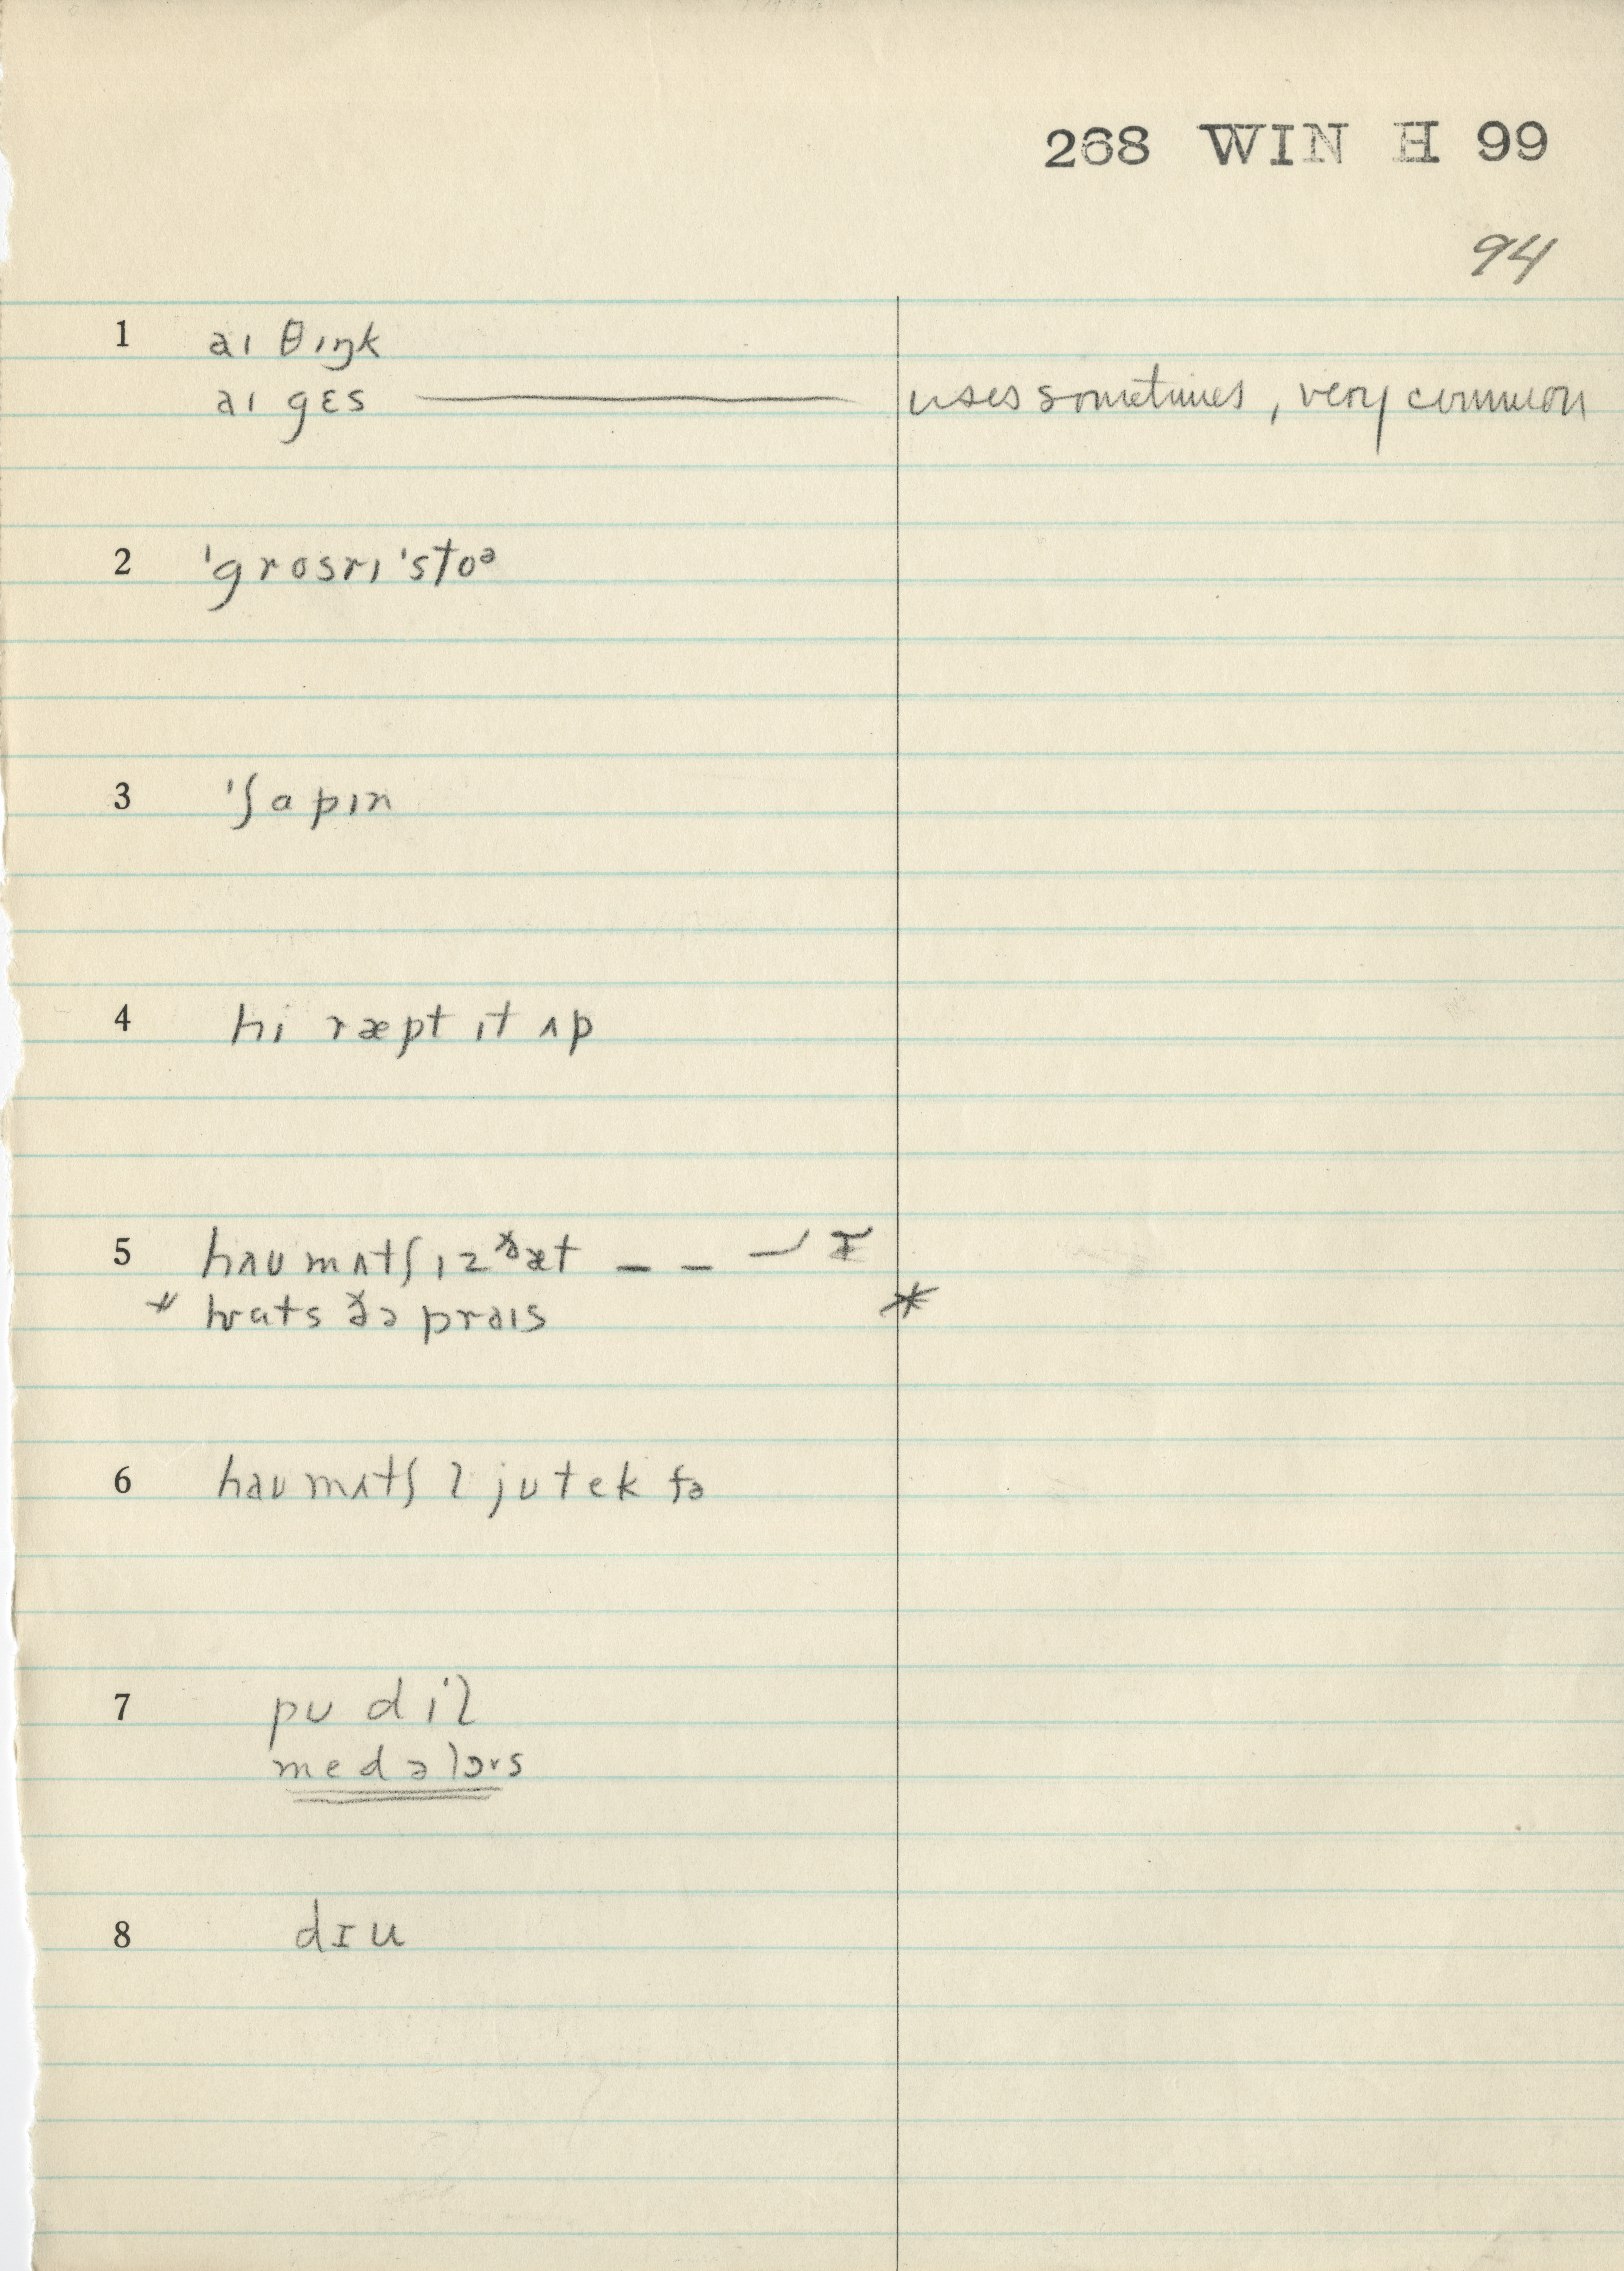 268 WIN H 99
94
1 aɪ θɪŋk
aɪ gɛs ——— uses sometimes, very common
2 ˈgrosrɪ ˈstoᵊ
3 ˈʃapɪn
4 hi ræpt ɪt ʌp
5 haʊ mʌtʃ ɪz ðæt – – –
* hwats ðə praɪs *
6 haʊ mʌtʃ l jʊ tek fə
7 pʊ dɪl
8 dɪu